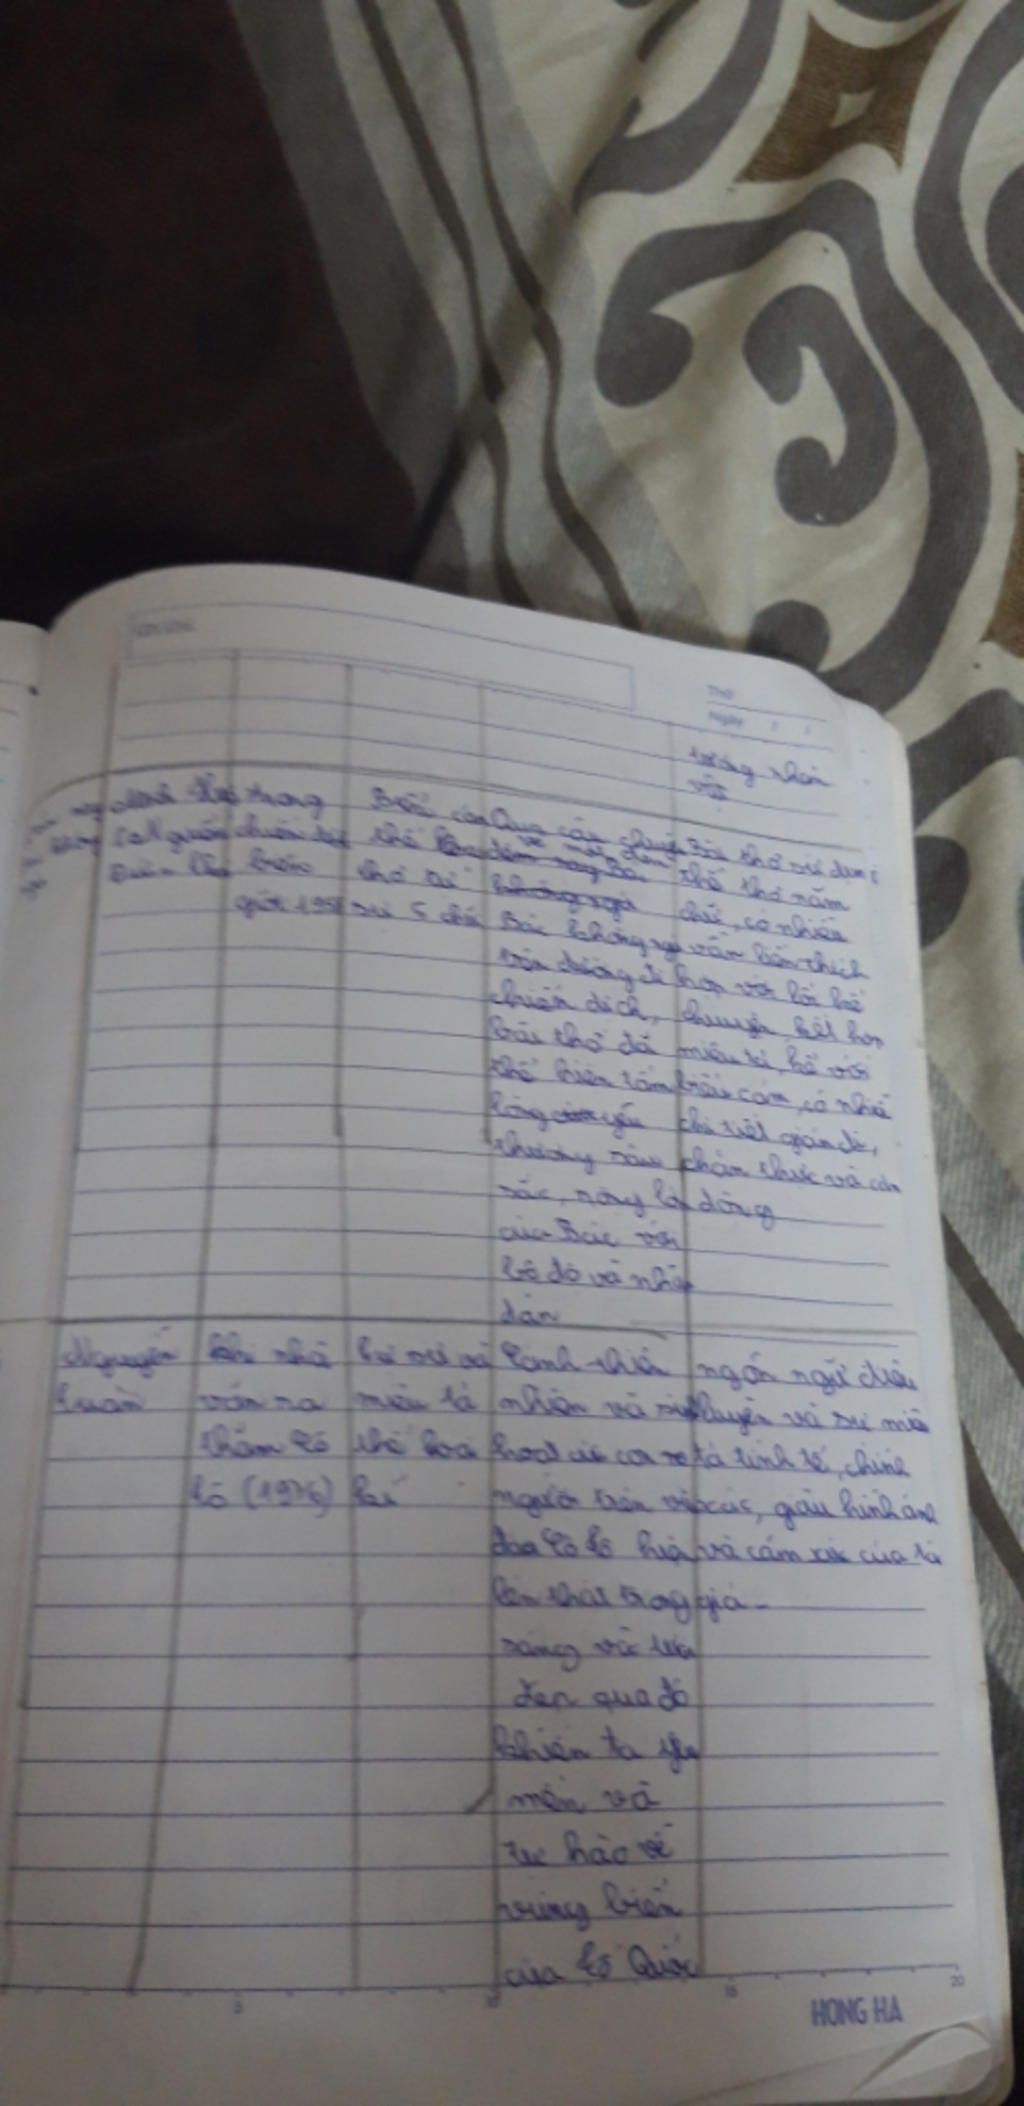 Thứ
Ngày / /
tường nhân
vật
Minh Huệ
trong
Biểu cảm
Qua câu chuyện
Bài thơ sử dụng
về một đêm
thể thơ năm
thơ tự
chữ, có nhiều
giới 1951
sự 5 chữ
Bác không ngủ
vần liền thích
trên đường đi
hợp với lối kể
chiến dịch,
chuyện, kết hợp
bài thơ đã
miêu tả, kể với
thể hiện tấm
biểu cảm, có nhiều
lòng yêu
chi tiết giản dị,
thương sâu
chân thực và cảm
sắc, rộng lớn
động
của Bác với
bộ đội và nhân
dân
Nguyễn
khi nhà
tự sự và
Cảnh thiên
ngôn ngữ điêu
tuân
văn ra
miêu tả
nhiên và sinh
luyện và sự miêu
thăm Cô
thể loại
hoạt của con
tả tinh tế, chính
tô (1976)
kí
người trên vùng
xác, giàu hình ảnh
đảo Cô tô hiện
và cảm xúc của tác
lên thật trong
giả.
sáng và tươi
đẹp qua đó
khiến ta yêu
mến và
tự hào về
vùng biển
của tổ Quốc
5 10 15 20
HONG HA